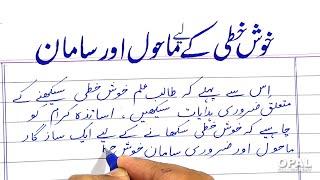 خوش خطی کے لیے ماحول اور سامان
اِس سے پہلے کہ طالب علم خوش خطی سیکھنے کے
متعلق ضروری ہدایات سیکھیں، اساتذہ کرام کو
چاہیے کہ خوش خطی سکھانے کے لیے ایک ساز گار
ماحول اور ضروری سامان خوش خط
OPAL